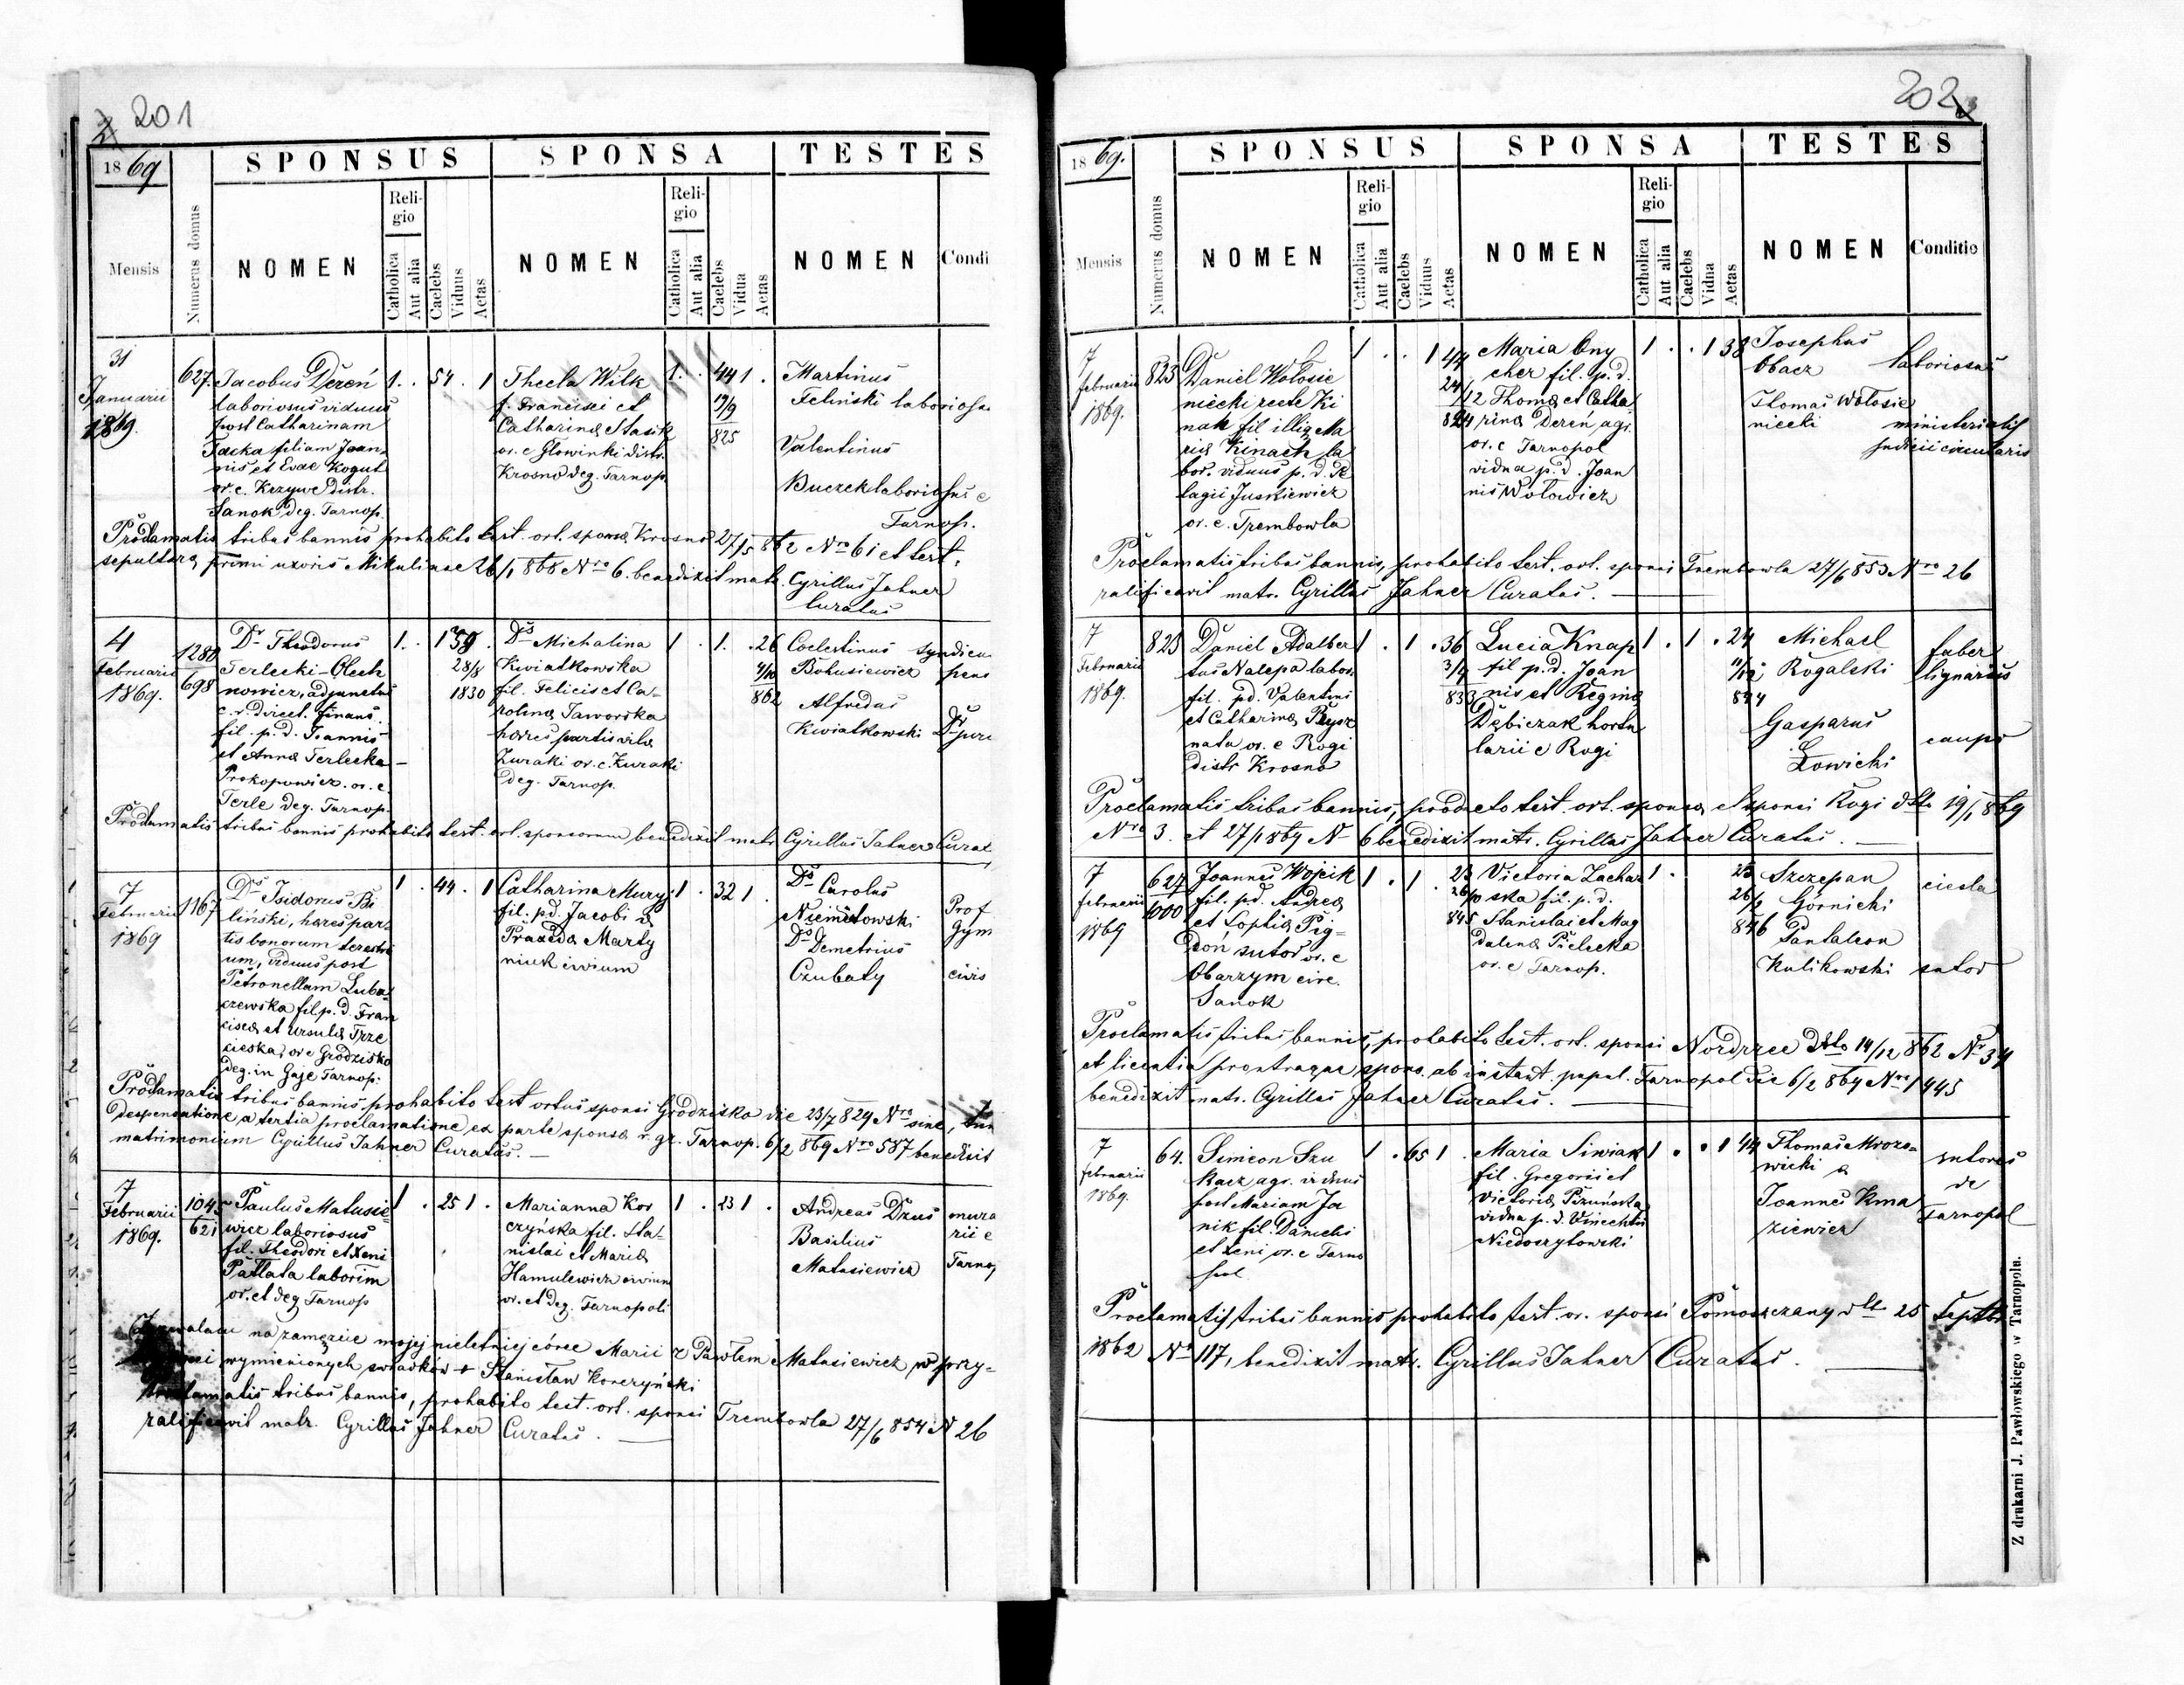 201
1869
SPONSUS
SPONSA
TESTES
Mensis
Numerus domus
NOMEN
Religio
Catholica
Aut alia
Caelebs
Viduus
Aetas
NOMEN
Religio
Catholica
Aut alia
Caelebs
Vidua
Aetas
NOMEN
Condi
31
Januarii
1869.
627.
Jacobus Dereń
laboriosus viduus
post Catharinam
Tacka filiam Joan-
nis et Evae Kogut
or. e. Krzywe distr.
Sanok deg. Tarnop.
1. . 54 . 1
Thecla Wilk
f. Francisci et
Catharina Stasik
or. e Głowinki distr.
Krosno deg. Tarnop.
1. . 44 1 .
19/9
825
Martinus
Feliński laborios
Valentinus
Buczek laboriosus e
Tarnop.
Proclamatis tribus bannis prohabito test. ort. sponsa Krosno 27/5 862 Nro 61 et test.
sepultura primi uxoris Mikulince 26/1 868 Nro 6. benedixit matr. Cyrillus Jahner
Curatus
4
Februarii
1869.
1280
698
Dr Theodorus
Terlecki-Olech
nowicz, adjunctus
c. r. direct. finans.
fil. p. d. Joannis
et Anna Terlecka
Prokopowicz. or. e.
Terle deg. Tarnop.
1. . 1 39.
28/8
1830
Ds Michalina
Kwiatkowska
fil. Felicis et Ca-
rolina Jaworska
haeres partis villa
Zuraki or. e. Zuraki
deg. Tarnop.
1 . 1. . 26
862
Coelestinus syndicu
Bohusiewicz pens
Alfredus
Kwiatkowski Dr jure
Proclamatis tribus bannis prohabito test. ort. sponsorum benedixit matr. Cyrillus Jahner Curat
7
Februarii
1869
1167
Ds Isidorus Bi
liński, haeres par-
tis bonorum terestri
um, viduus post
Petronellam Luba
czewska fil p. d. Fran
cisca et Ursula Trze
cieska, or e Grodzisko
deg. in Gaje Tarnop.
1 . 44. 1
Catharina Mury
fil. pd. Jacobi &
Praxeda Marty
niuk civium
1 . 32 1 .
Ds Carolus
Niemiłowski Prof
Gym
Ds Demetrius
Czubaty civis
Proclamatis tribus bannis prohabito test ortus sponsi Grodzisko die 23/7 829 Nro sine,
despensatione a tertia proclamatione ex parte sponsa r. gr. Tarnop. 6/2 869 Nro 587 benedixit
matrimonium Cyrillus Jahner Curatus.
7
Februarii
1869.
1045
621
Paulus Matusie-
wicz laboriosus
fil. Theodori et Xeni
Patlata laborim
or. et deg Tarnop
1 . 25 1 .
Marianna Kor
czyńska fil. Sta-
nislai et Maria
Hamulewicz civium
or. et deg. Tarnopoli
1 . 23 1 .
Andreas Dzus mura
Basilius rii e
Matusiewicz Tarno
na zamęzcie mojej nieletniej córce Marii z Pawłem Matusiewicz w przy-
wymienionych swiadków + Stanisław Korczyński
Proclamatis tribus bannis, prohabito test. ort. sponsi Trembowla 27/6 854 N 26
ratificavit matr. Cyrillus Jahner Curatus.
202
1869.
SPONSUS
SPONSA
TESTES
Mensis
Numerus domus
NOMEN
Religio
Catholica
Aut alia
Caelebs
Viduus
Aetas
NOMEN
Religio
Catholica
Aut alia
Caelebs
Vidua
Aetas
NOMEN
Conditio
7
februarii
1869.
823
Daniel Wołosie
niecki recte Ki
nak fil illig Ma
ria Kinach la
bor. viduus p. d. Pe
lagii Juskiewicz
or. e. Trembowla
1 . . 1 44
24/12
824
Maria Ony
cher fil. p. d.
Thoma et Catha
rina Dereń agr.
or. e Tarnopol
vidua p. d. Joan
nis Wołowicz
1 . . 1 38
Josephus
Obacz laboriosus
Thomas Wołosie
niecki ministerialis
judicii circularis
Proclamatis tribus bannis, prohabito test. ort. sponsi Trembowla 27/6 853 Nro 26
ratificavit matr. Cyrillus Jahner Curatus.
7
Februarii
1869.
823
Daniel Adalber
tus Nalepa labor.
fil. pd. Valentini
et Catharina Prysz
nata or. e Rogi
distr Krosno
1 . 1 . 36
3/4
833
Lucia Knap
fil p. d. Joan
nis et Regina
Dębiczak hortu
larii e Rogi
1 . 1 . 24
11/12
844
Michael faber
Rogalski lignarius
Gasparus
Łowicki caupo
Proclamatis tribus bannis, producto test. ort. sponsa et sponsi Rogi dtto 19/1 869
Nro 3. et 27/1 869 N 6 benedixit matr. Cyrillus Jahner Curatus.
7
februarii
1869
627
1000
Joannes Wojcik
fil. pd. Andrea
et Sophia Pig-
doń sutor or. e
Obarzym circ.
Sanok
1 . 1 . 23
26/10
845
Victoria Zachar
ska fil. p. d.
Stanislai et Mag
dalena Pielecka
or. e Tarnop.
1 . 23
26/
846
Szczepan ciesla
Górnicki
Pantaleon
Kulikowski sutor
Proclamatis tribus bannis, prohabito test. ort. sponsi Nozdrzec dtto 14/12 862 Nr 34
et licentia pro utraque spons. ab instant. popul. Tarnopol die 6/2 869 Nro 1445
benedixit matr. Cyrillus Jahner Curatus.
7
februarii
1869.
64.
Simeon Szu
kacz agr. viduus
post Mariam Ja
nik fil. Danielis
et Xeni or. e Tarno
pol
1 . 65 1 .
Maria Siwiak
fil. Gregorii et
Victoria Pszunska
vidua p. d. Vincentii
Niedoszytowski
1 . . 1 44
Thomas Mrozo-
wicki & sutores
Joannes Kma de
ziewicz Tarnopol
Proclamatis, tribus bannis prohabito test. or. sponsi Pomorzany dtto 25 Septbr
1862 Nr 117, benedixit matr. Cyrillus Jahner Curatus.
Z drukarni J. Pawłowskiego w Tarnopolu.